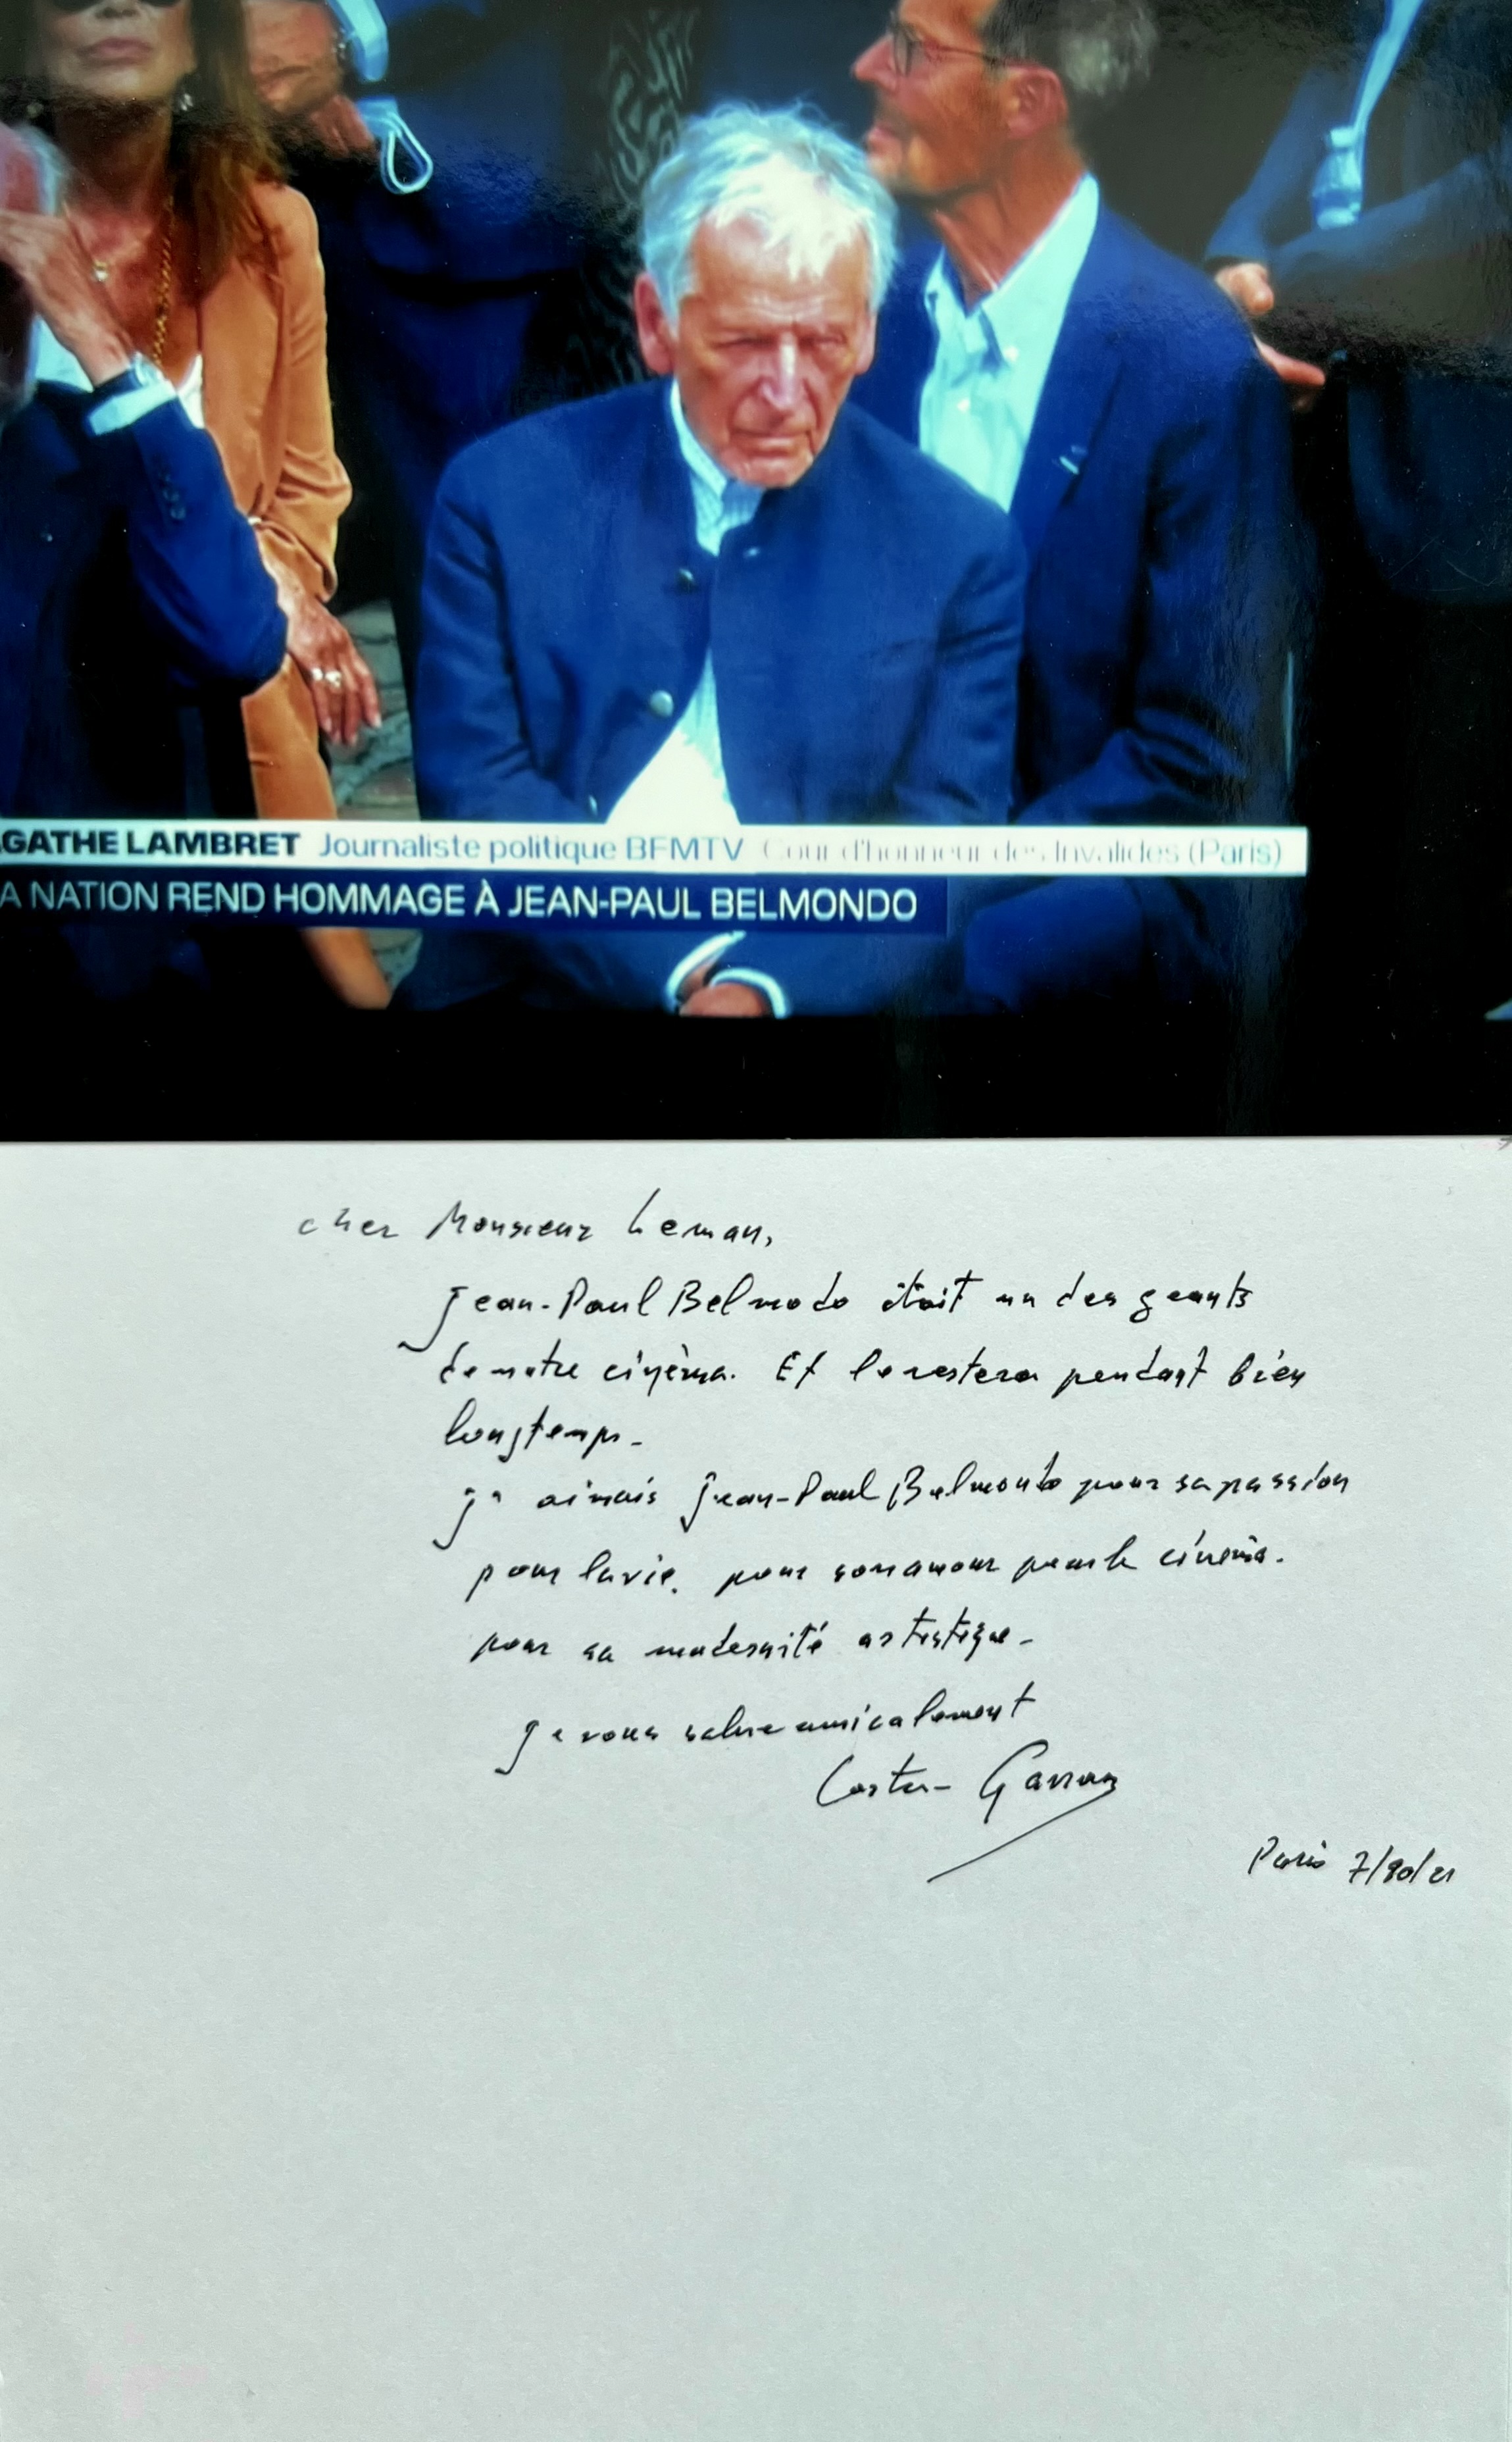 GATHE LAMBRET Journaliste politique BFMTV Cour d'honneur des Invalides (Paris)
A NATION REND HOMMAGE À JEAN-PAUL BELMONDO
cher Monsieur Leman,
Jean-Paul Belmodo était un des geants
de notre cinéma. Et le restera pendant bien
longtemps.
J' aimais Jean-Paul Belmondo pour sa passion
pour la vie, pour son amour pour le cinéma.
pour sa modernité artistique.
Je vous salue amicalement
Costa-Gavras
Paris 7/10/21